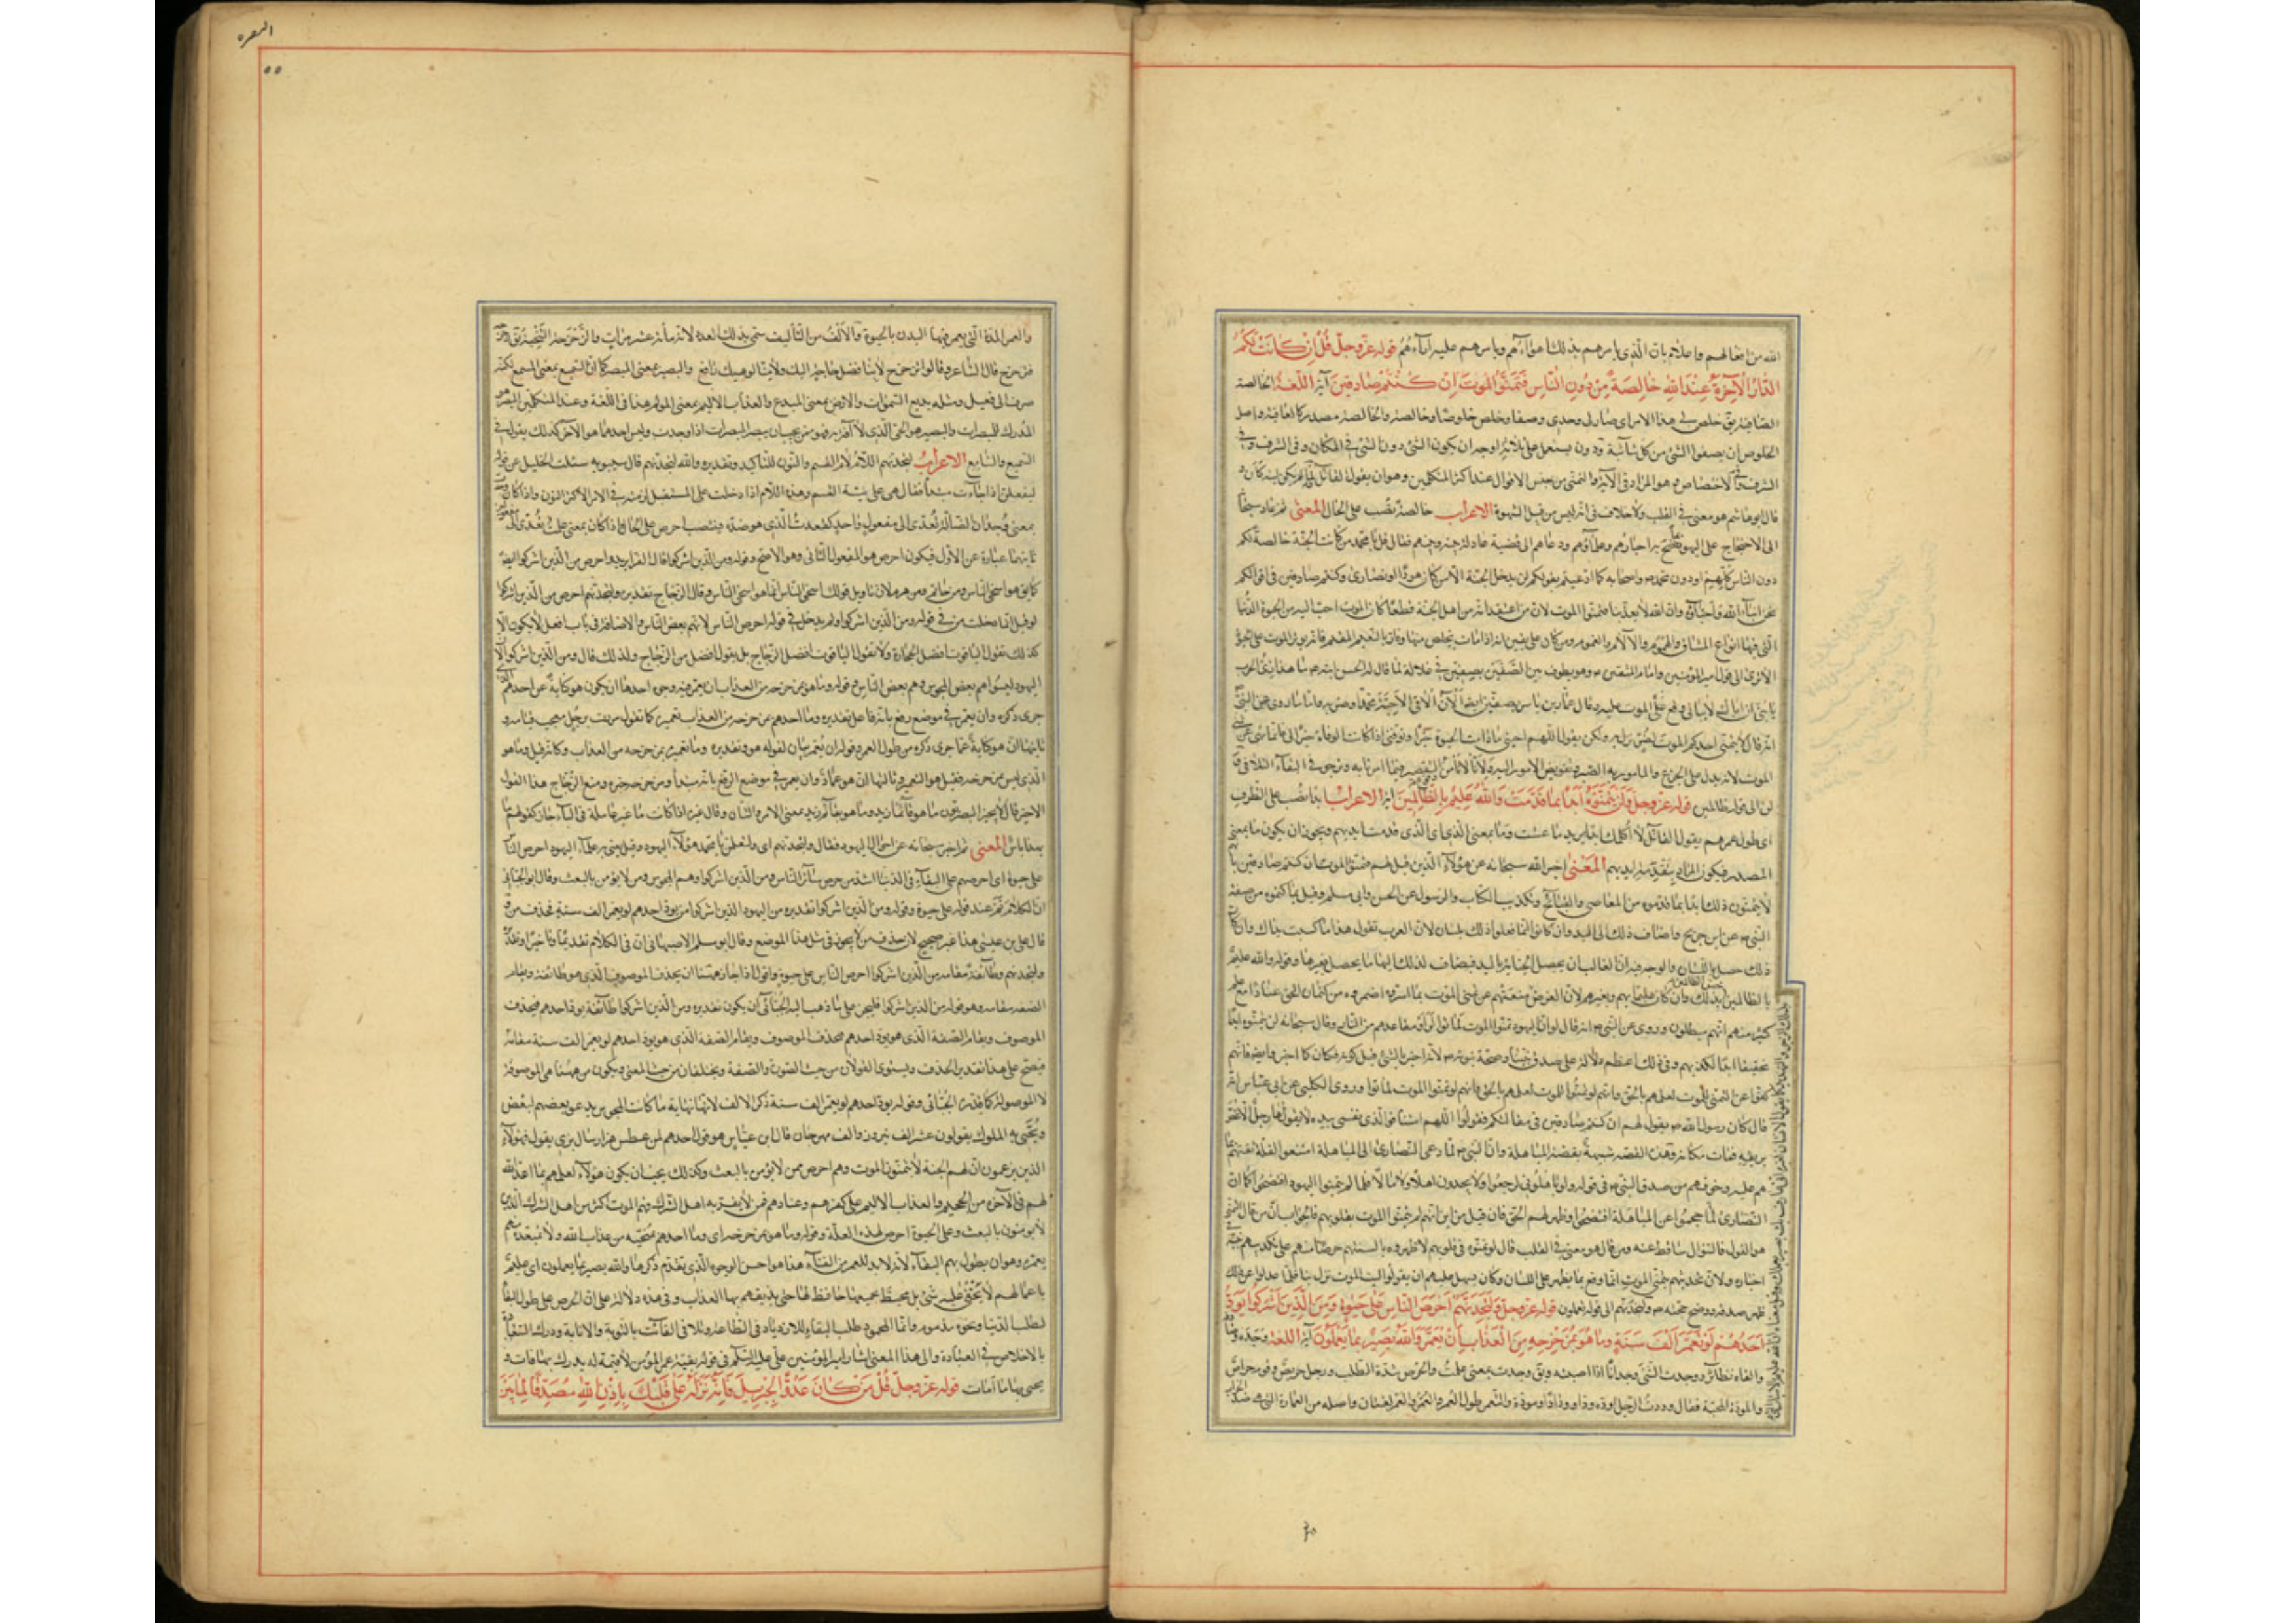 الله من افعالهم واعلام بان الذي يامرهم بذلك اهواءهم ويامرهم عليه آراءهم قوله عز وجل قُلْ اِنْ كَانَتْ لَكُمُ
الدَّارُ الْآخِرَةُ عِنْدَ اللهِ خَالِصَةً مِنْ دُونِ النَّاسِ فَتَمَنَّوُا الْمَوْتَ اِنْ كُنْتُمْ صَادِقِينَ آية اللغة الخالصة
الصافية يق خلص لي هذا الامر اي صار لي وحدي وصفا وخلص خلوصا وخالصة والخالصة مصدر كالعافية واصل
الخلوص ان يصفو الشئ من كل شائبة ودون يستعمل على ثلاثة اوجه ان يكون الشئ دون الشئ في المكان وفي الشرف وفي
الاختصاص وهو المراد في الآية والتمني من جنس الاقوال عند اكثر المتكلمين وهو ان يقول القائل لما
قال ابو هاشم هو معنى في القلب ولا خلاف في انه ليس من قبيل الشهوة الاعراب خالصة نصب على الحال المعنى ثم عاد سبحانه
الى الاحتجاج على اليهود بما فضح به احبارهم وعلماؤهم ودعاهم الى قضية عادلة بينه وبينهم فقال قل يا محمد ان كانت الجنة خالصة لكم
دون الناس كلهم او دون محمد واصحابه كما ادعيتم بقولكم لن يدخل الجنة الا من كان هودا او نصارى وكنتم صادقين في قولكم
نحن ابناء الله واحباؤه وان الله لا يعذبنا فتمنوا الموت لان من اعتقد انه من اهل الجنة قطعا كان الموت احب اليه من الحيوة الدنيا
التي فيها انواع المشاق والهموم والآلام والغموم ومن كان على يقين انه اذا مات تخلص منها وفاز بالنعيم المقيم فانه يؤثر الموت على الحيوة
الا ترى الى قول امير المؤمنين وهو يطوف بين الصفين بصفين في غلالة لما قال له الحسن ابنه ما هذا بزي الحرب
يا بني ان اباك لا يبالي وقع على الموت او وقع الموت عليه وقال عمار بن ياسر بصفين ايضا الآن الاقي الاحبة محمدا وحزبه واما ما روي عن النبي
انه قال لا يتمنى احدكم الموت لضر نزل به ولكن يقول اللهم احيني ما دامت الحيوة خيرا وتوفني اذا كانت الوفاة خيرا لي
الموت لانه يدل على الجزع والمامور به الصبر وتفويض الامور اليه ولانا لا نأمن التقصير فيما امر نابه ونرجو في البقاء التلافي
قوله عز وجل وَلَنْ يَتَمَنَّوْهُ اَبَدًا بِمَا قَدَّمَتْ وَاللهُ عَلِيمٌ بِالظَّالِمِينَ آية الاعراب ابدا نصب على الظرف
اي طول عمرهم يقول القائل لا اكلمك ابدا يريد ما عشت وما بمعنى الذي اي بالذي قدمت ايديهم ويجوز ان يكون ما بمعنى
المصدر فيكون المراد بتقدمة ايديهم المعنى اخبر الله سبحانه عن هؤلاء الذين قيل لهم فتمنوا الموت ان كنتم صادقين
لا يتمنون ذلك ابدا بما قدموه من المعاصي والقبائح وتكذيب الكتاب والرسول عن الحسن وابي مسلم وقيل بما كتموه من صفة
النبي عن ابن جريج واضاف ذلك الى اليد وان كانوا انما فعلوا ذلك باللسان لان العرب تقول هذا ما كسبت يداك وان كان
ذلك حصل باللسان والوجه فيه ان الغالب ان يحصل الجناية باليد فيضاف لذلك اليها ما يحصل بغيرها وقوله والله عليم
بالظالمين بذلك وان كان عليما بهم وبغيرهم لان الغرض
كثير منهم انهم مبطلون وروي عن النبي انه قال لو ان اليهود تمنوا الموت لماتوا ولرأوا مقاعدهم من النار وقال سبحانه لن يتمنوه ابدا
تحقيقا لكذبهم وفي ذلك اعظم دلالة على صدق نبينا وصحة نبوته لانه اخبر بالشئ قبل كونه فكان كما اخبر وايضا فانهم
كفوا عن التمني للموت لعلمهم بالحق وانهم لو تمنوا الموت لماتوا وروى الكلبي عن ابن عباس انه
قال كان رسول الله يقول لهم ان كنتم صادقين في مقالتكم فقولوا اللهم امتنا فوالذي نفسي بيده لا يقولها رجل الا غص
بريقه فمات مكانه وهذه القصة شبيهة بقصة المباهلة وان النبي لما دعى النصارى الى المباهلة امتنعوا لقلة ثقتهم بما
هم عليه وخوفهم من صدق النبي
النصارى لما احجموا عن المباهلة افتضحوا وظهر الحق فان قيل من اين انهم لم يتمنوا الموت بقلوبهم فالجواب ان من قال التمني
هو القول فالسؤال ساقط عنه ومن قال هو معنى في القلب قال لو تمنوه في قلوبهم لاظهروه بالسنتهم حرصا منهم على تكذيبه في
اخباره ولان تحديهم بتمني الموت انما وقع بما يظهر على اللسان وكان يسهل عليهم ان يقولوا ليت الموت نزل بنا فلما عدلوا عن ذلك
ظهر صدقه ووضح حجته قوله عز وجل وَلَتَجِدَنَّهُمْ اَحْرَصَ النَّاسِ عَلَى حَيٰوةٍ وَمِنَ الَّذِينَ اَشْرَكُوا يَوَدُّ
اَحَدُهُمْ لَوْ يُعَمَّرُ اَلْفَ سَنَةٍ وَمَا هُوَ بِمُزَحْزِحِهِ مِنَ الْعَذَابِ اَنْ يُعَمَّرَ وَاللهُ بَصِيرٌ بِمَا يَعْمَلُونَ آية اللغة وجده
والفاه نظائر ووجدت الشئ وجدانا اذا اصبته ويق وجدت بمعنى علمت والحرص شدة الطلب ورجل حريص وقوم حراص
والمودة المحبة يقال وددت الرجل اوده ودا وودادا ومودة والتعمير طول العمر والعمر والعمر لغتان واصله من العمارة الذي هو ضد
البقره
والعمر المدة التي يعمر فيها البدن بالحيوة والالف من التأليف سمي بذلك العدد لانه مأة عشر مرات والزحزحة التنحية يق زحزحته
فتزحزح قال الشاعر وقالوا تزحزح لا بنا فضل حاجة اليك ولا منا لوهيك راقع والبصير بمعنى المبصر كما ان السميع بمعنى المسمع لكنه
صرف الى فعيل ومثله بديع السموات والارض بمعنى المبدع والعذاب الاليم بمعنى المولم هذا في اللغة وعند المتكلمين المبصر هو
المدرك للمبصرات والبصير هو الحي الذي لا آفة به فهو ممن يجب ان يبصر المبصرات اذا وجدت وليس احدهما هو الآخر كذلك يقول في
السميع والسامع الاعراب لتجدنهم اللام لام القسم والنون للتأكيد وتقديره والله لتجدنهم قال سيبويه سئلت الخليل عن قوله
ليفعلن اذا جاءت مبتدأة فقال هي على نية القسم وهذه اللام اذا دخلت على المستقبل لزمته في الامر الاكثر النون واذا كان
بمعنى وجدان الضالة تعدى الى مفعول واحد كفقدت الذي هو ضده فينتصب احرص على الحال واذا كان بمعنى علمت تعدى الى
ثانيهما عبارة عن الاول فيكون احرص هو المفعول الثاني وهو الاصح وقوله ومن الذين اشركوا قال الفراء يريد واحرص من الذين اشركوا ايضا
كما يق هو اسخى الناس ومن حاتم ومن هرم لان تاويل قولك اسخى الناس انما هو اسخى من الناس وقال الزجاج تقديره ولتجدنهم احرص من الذين اشركوا
وقيل انما دخلت من في قوله ومن الذين اشركوا ولم يدخل في قوله احرص الناس لانهم بعض الناس والاضافة في باب افعل لا يكون الا
كذلك تقول الياقوت افضل الحجارة ولا تقول الياقوت افضل الزجاج بل يقول افضل من الزجاج ولذلك قال ومن الذين اشركوا لان
اليهود ليسوا هم بعض المجوس وهم بعض الناس وقوله وما هو بمزحزحه من العذاب ان يعمر فيه وجوه احدها ان يكون هو كناية عن احدهم الذي
جرى ذكره وان يعمر في موضع رفع بانه فاعل تقديره وما احدهم بمزحزحه من العذاب تعميره كما تقول مررت برجل معجب قيامه و
ثانيها ان هو كناية عما جرى ذكره من طول العمر وقوله ان يعمر بيان لقوله هو وتقديره وما تعميره بمزحزحه من العذاب وكانه قيل وما هو
الذي ليس بمزحزحه فقيل هو التعمير وثالثها ان هو عماد وان يعمر في موضع الرفع بانه مبتدأ وبمزحزحه خبره ومنع الزجاج هذا القول
الاخير قال لا يجيز البصريون ما هو قائما زيد وما هو بقائم زيد بمعنى الامر والشأن وقال غيره اذا كانت ما غير عاملة في الباء جاز كقولهم ما
بهذا باس المعنى ثم اخبر سبحانه عن احوال اليهود فقال ولتجدنهم اي ولتعلمن يا محمد هؤلاء اليهود وقيل يعني به علماء اليهود احرص الناس
على حيوة اي احرصهم على البقاء في الدنيا اشد من حرص سائر الناس ومن الذين اشركوا وهم المجوس ومن لا يؤمن بالبعث وقال ابو الجبائي
ان الكلام تم عند قوله على حيوة وقوله ومن الذين اشركوا تقديره من اليهود الذين اشركوا من يود احدهم لو يعمر الف سنة فحذف من
قال علي بن عيسى هذا غير صحيح لان حذف من لا يجوز في مثل هذا الموضع وقال ابو مسلم الاصبهاني ان في الكلام تقديما وتاخيرا وتقديره
ولتجدنهم وطائفة من الذين اشركوا احرص الناس على حيوة واقول اذا جاز ههنا ان يحذف الموصوف الذي هو طائفة ويقام
الصفة مقامه وهو قوله من الذين اشركوا فليجز على ما ذهب اليه الجبائي ان يكون تقديره ومن الذين اشركوا طائفة يود احدهم فيحذف
الموصوف ويقام الصفة الذي هو يود احدهم لو يعمر الف سنة مقامه
فيصح على هذا تقدير الحذف ويستوي القولان من حيث الصورة والصفة ويختلفان من حيث المعنى ويكون من ههنا هي الموصوفة
لا الموصولة كما قدره الجبائي وقوله يود احدهم لو يعمر الف سنة ذكر الالف لانها نهاية ما كانت المجوس يدعو بعضهم لبعض
ويحيي به الملوك يقولون عش الف نيروز والف مهرجان قال ابن عباس هو قول احدهم لمن عطس هزار سال بزي يقول فهؤلاء
الذين يزعمون ان لهم الجنة لا يتمنون الموت وهم احرص ممن لا يؤمن بالبعث وكذلك يجب ان يكون هؤلاء لعلمهم بما اعد الله
لهم في الآخرة من الجحيم والعذاب الاليم على كفرهم وعنادهم
لا يؤمنون بالبعث وعلى الحيوة احرص لهذه العلة وقوله وما هو بمزحزحه اي وما احدهم بمنجيه من عذاب الله ولا بمبعده منه
تعميره وهو ان يطول بهم البقاء لانه لابد للعمر من الفناء هذا هو احسن الوجوه الذي تقدم ذكرها والله بصير بما يعملون اي عليم
باعمالهم لا يخفى عليه شئ بل محيط بجميعها حافظ لها حتى يذيقهم بها العذاب وفي هذه دلالة على ان الحرص على طول البقاء
لطلب الدنيا ونحوه مذموم وانما المحمود طلب البقاء للازدياد في الطاعة وتلافي الفائت بالتوبة والانابة ودرك السعادة
بالاخلاص في العبادة والى هذا المعنى اشار امير المؤمنين علي عليه السلم في قوله بقية عمر المؤمن لا قيمة له يدرك بها ما فات و
يحيي بها ما امات قوله عز وجل قُلْ مَنْ كَانَ عَدُوًّا لِجِبْرِيلَ فَاِنَّهُ نَزَّلَهُ عَلَى قَلْبِكَ بِاِذْنِ اللهِ مُصَدِّقًا لِمَا بَيْنَ